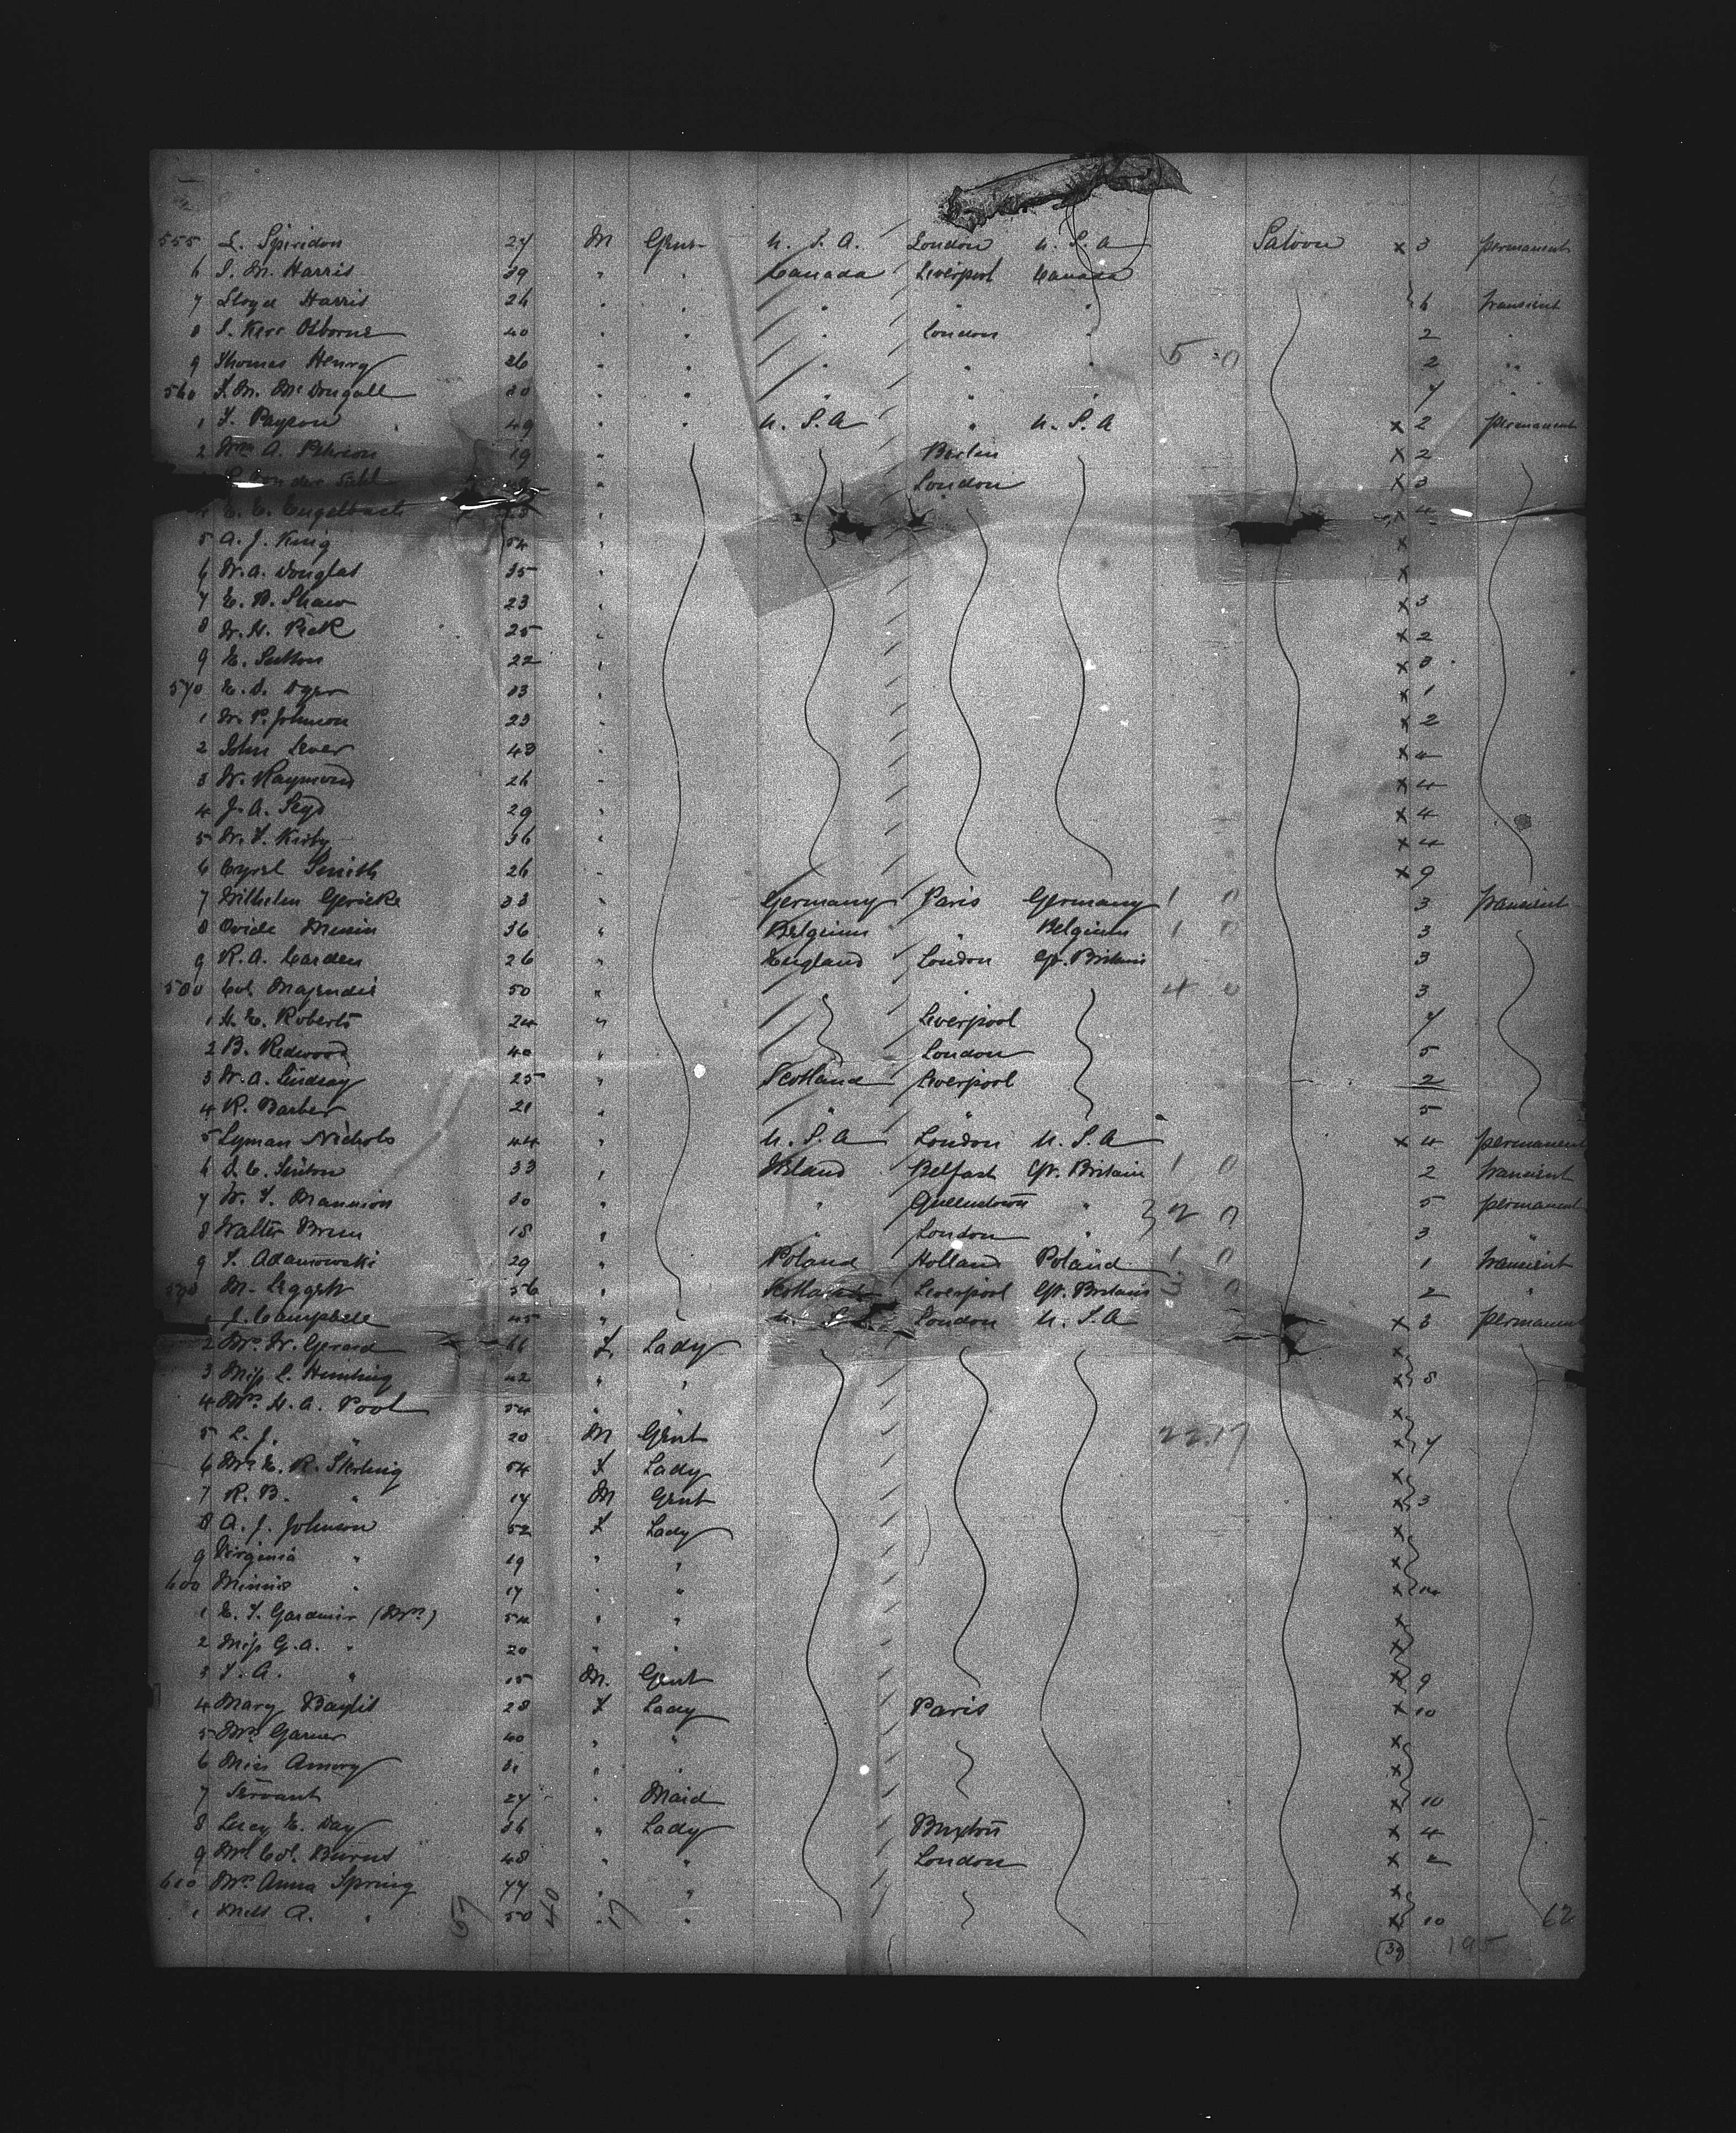 555 L. Spiridon 27 M Gent U. S. A. London U. S. A Saloon x 3 permanent
6 S. M. Harris 39 " " Canada Liverpool Canada
7 Lloyd Harris 26 " " " " " 6 transient
8 S. Kerr Osborne 40 " " " London " 2 "
9 Thomas Henry 26 " " " " " 5 0 2 "
560 J. M. McDougall 30 " " " " " 7 "
1 F. Payson 49 " " U. S. A " U. S. A x 2 permanent
2 Wm A. 19 " Berlin x 2
London x 3
4 x 4
5 A. J. King 54 " x
6 W. A. Douglas 35 " x
7 E. D. Shaw 23 " x 3
8 W. H. Peck 25 " x 2
9 E. Sutton 22 " x 3
570 E. S. Dyer 33 " x 1
1 W. P. Johnson 23 " x 2
2 John Lever 43 " x 4
3 W. Raymond 26 " x 4
4 J. A. 29 " x 4
5 W. F. Kirby 36 " x 4
6 Cyril Smith 26 " x 9
7 Wilhelm Gericke 33 " Germany Paris Germany 1 0 3 transient
8 Ovide Musin 36 " Belgium " Belgium 1 0 3
9 R. A. Carden 26 " England London Gt. Britain 3
580 Col. Majendie 50 " " 4 0 3
1 H. E. Roberts 24 " Liverpool 7
2 B. Redwood 40 " London 5
3 W. A. Lindsay 25 " Scotland Liverpool 2
4 R. Barber 21 " " " 5
5 Lyman Nichols 44 " U. S. A London U. S. A x 4 permanent
6 S. C. Sinton 33 " Ireland Belfast Gt. Britain 1 0 2 transient
7 W. F. Mannion 30 " " Queenstown " 2 0 5 permanent
8 Walter Breen 18 " " London " 3 "
9 T. Adamowski 29 " Poland Holland Poland 1 0 1 transient
590 M. Leggett 56 " Scotland Liverpool Gt. Britain 3 0 2 "
1 J. Campbell 45 " U. S. A London U. S. A x 3 permanent
2 Mrs. W. Gerard 66 F. Lady x
3 Miss L. 42 " " x 8
4 Mrs. H. A. Pool 54 " " x
5 L. J. " 20 M Gent x 7
6 Mrs. E. R. Sterling 54 F Lady x
7 R. B. " 17 M Gent x 3
22.17
8 A. J. Johnson 52 F Lady x
9 Virginia " 19 " " x
600 Minnie " 17 " " x 14
1 E. F. Gardiner (Mrs.) 54 " " x
2 Miss G. A. " 20 " " x
3 F. A. " 15 M. Gent x 9
4 Mary Baylis 28 F Lady Paris x 10
5 Mrs. Garner 40 " " x
6 Miss Amory 31 " " x
7 Servant 27 " Maid x 10
8 Lucy E. Day 36 " Lady Buxton x 4
9 Mrs. Col. Burns 48 " " London x 2
610 Mrs. Anna Spring 77 " " x
1 Miss A. " 50 " " x 10
57 40 17 62
(39) 195